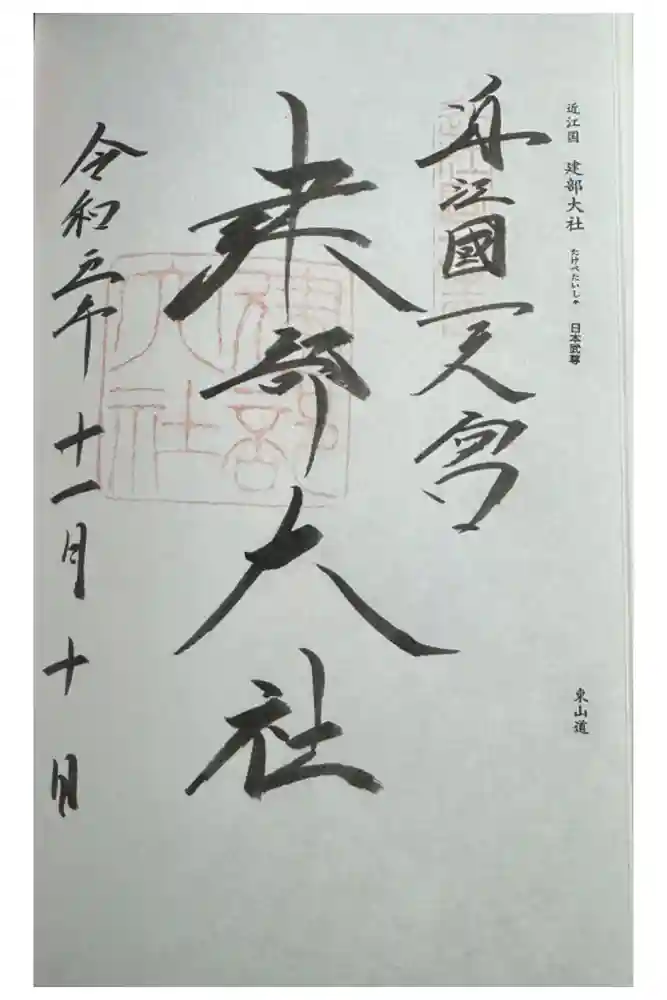 近江国 建部大社 たけべたいしゃ 日本武尊 東山道
近江國一之宮
建部大社
令和五年 十一月 十日
建部大社